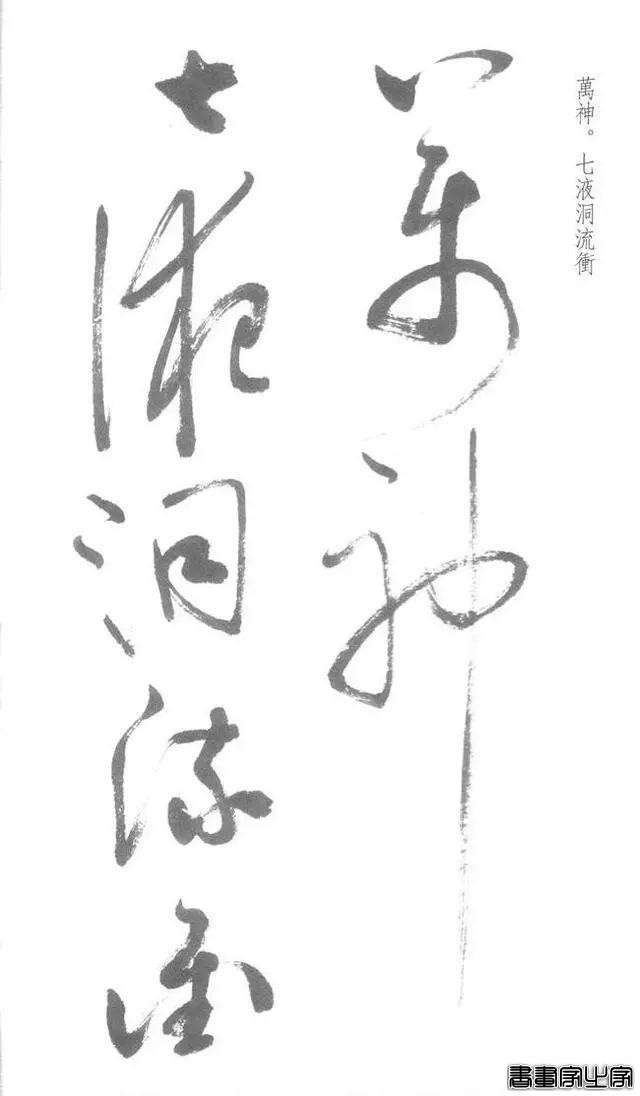 萬神。七液洞流衝
萬神
七液洞流衝
書畫家之家